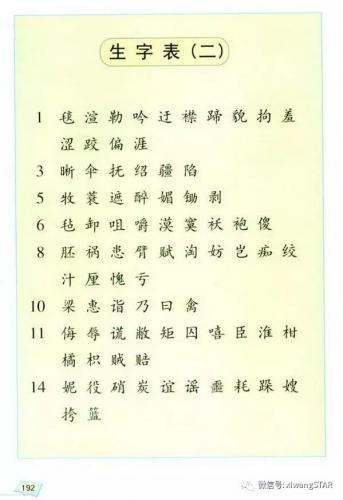 生字表（二）
1 毯 渲 勒 吟 迂 襟 蹄 貌 拘 羞
涩 跤 偏 涯
3 晰 伞 抚 绍 疆 陷
5 牧 蓑 遮 醉 媚 锄 剥
6 毡 卸 咀 嚼 漠 寞 袄 袍 傻
8 胚 祸 患 臂 赋 淘 妨 岂 痴 绞
汁 厘 愧 亏
10 梁 惠 诣 乃 曰 禽
11 侮 辱 谎 敝 矩 囚 嘻 臣 淮 柑
橘 枳 贼 赔
14 妮 役 硝 炭 谊 谣 噩 耗 跺 嫂
挎 篮
192
微信号: xiwangSTAR